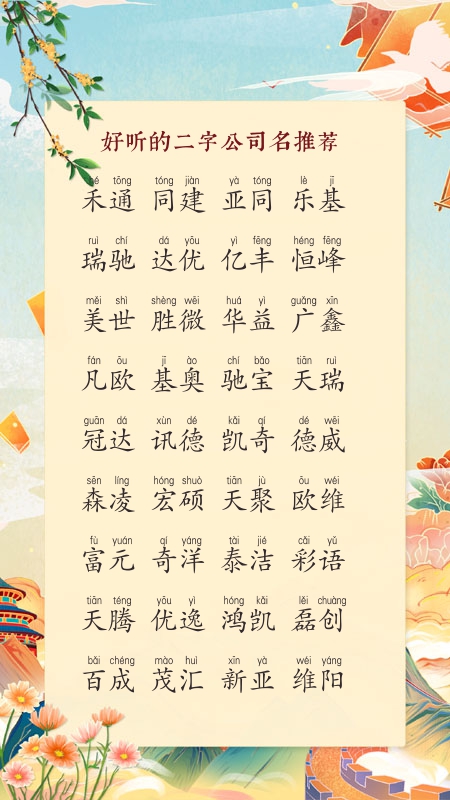 好听的二字公司名推荐
hé tōng tóng jiàn yà tóng lè jī
禾通 同建 亚同 乐基
ruì chí dá yōu yì fēng héng fēng
瑞驰 达优 亿丰 恒峰
měi shì shèng wēi huá yì guǎng xīn
美世 胜微 华益 广鑫
fán ōu jī ào chí bǎo tiān ruì
凡欧 基奥 驰宝 天瑞
guān dá xùn dé kǎi qí dé wēi
冠达 讯德 凯奇 德威
sēn líng hóng shuò tiān jù ōu wéi
森凌 宏硕 天聚 欧维
fù yuán qí yáng tài jié cǎi yǔ
富元 奇洋 泰洁 彩语
tiān téng yōu yì hóng kǎi lěi chuàng
天腾 优逸 鸿凯 磊创
bǎi chéng mào huì xīn yà wéi yáng
百成 茂汇 新亚 维阳